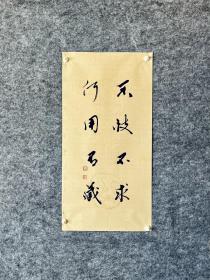 不忮不求
何用不臧